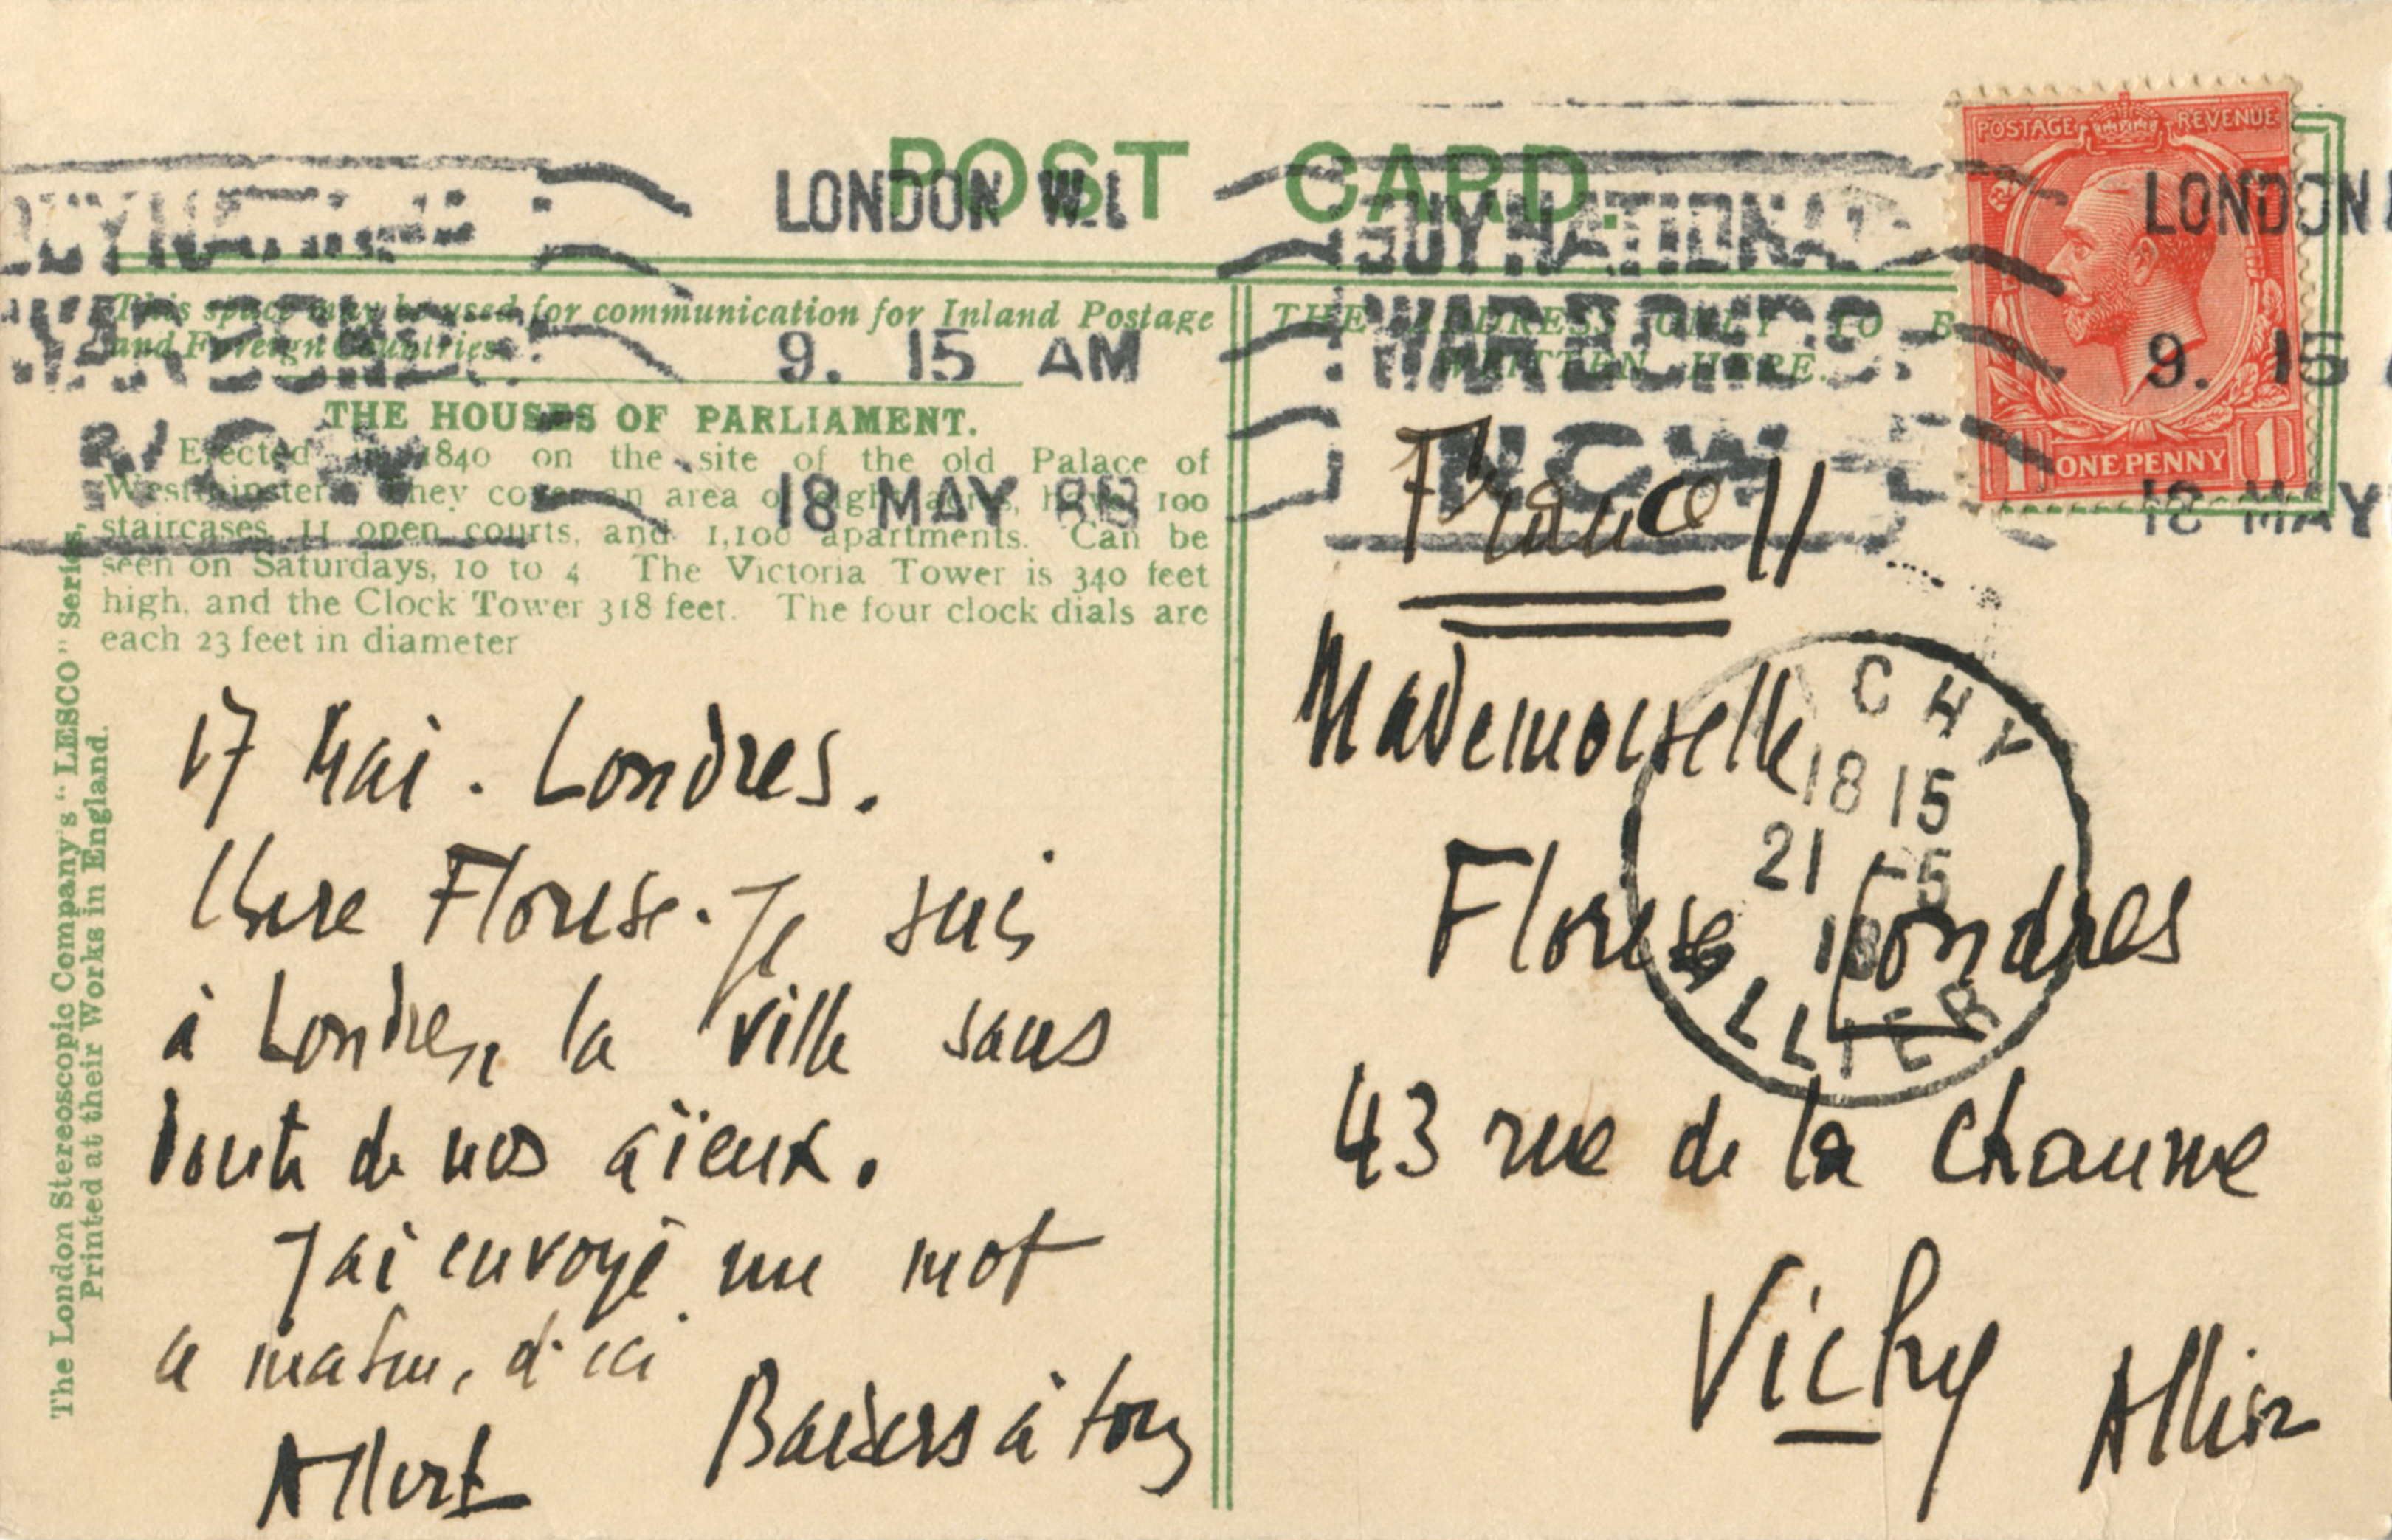 POST CARD.
LONDON W.1
BUY NATIONAL
LONDON
WAR BONDS
9. 15 AM
9. 15
NOW
18 MAY
18 MAY
POSTAGE REVENUE
1 ONE PENNY 1
This space may be used for communication for Inland Postage
and Foreign Countries
THE ADDRESS ONLY TO B
WRITTEN HERE.
THE HOUSES OF PARLIAMENT.
Erected in 1840 on the site of the old Palace of
Westminster. They cover an area of eight acres, have 100
staircases, 11 open courts, and 1,100 apartments. Can be
seen on Saturdays, 10 to 4 The Victoria Tower is 340 feet
high, and the Clock Tower 318 feet. The four clock dials are
each 23 feet in diameter
The London Stereoscopic Company's "LESCO" Series,
Printed at their Works in England.
17 Mai. Londres.
Chere Florise. Je suis
à Londres, la ville sans
doute de nos aïeux.
J'ai envoyé un mot
ce matin, d'ici
Baisers à tous
Albert
France
Mademoiselle
Florise Londres
43 rue de la Chaume
Vichy
Allier
VICHY
18 15
21 -5
18
ALLIER